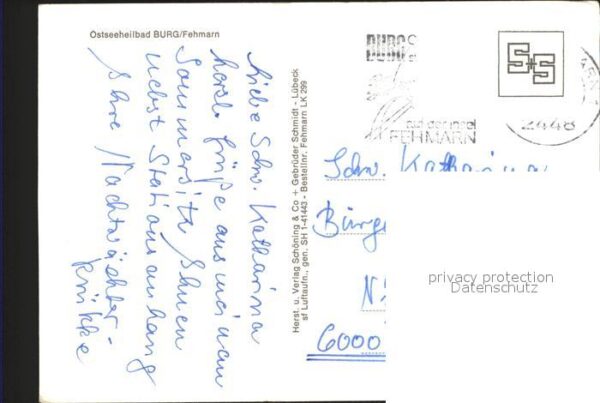 Ostseeheilbad BURG/Fehmarn
Liebe Schw. Katharina
herzl. Grüße aus meinem
Sommersitz Ihnen
nebst Stationsanhang
Ihre Nachtwächter-
Herst. u. Verlag Schöning & Co + Gebrüder Schmidt - Lübeck
sf Luftaufn., gen. SH 1-41443 - Bestellnr. Fehmarn LK 299
BURG
auf der Insel
FEHMARN
S+S
2448
Schw. Katharina
Bürge
N
6000
privacy protection
Datenschutz